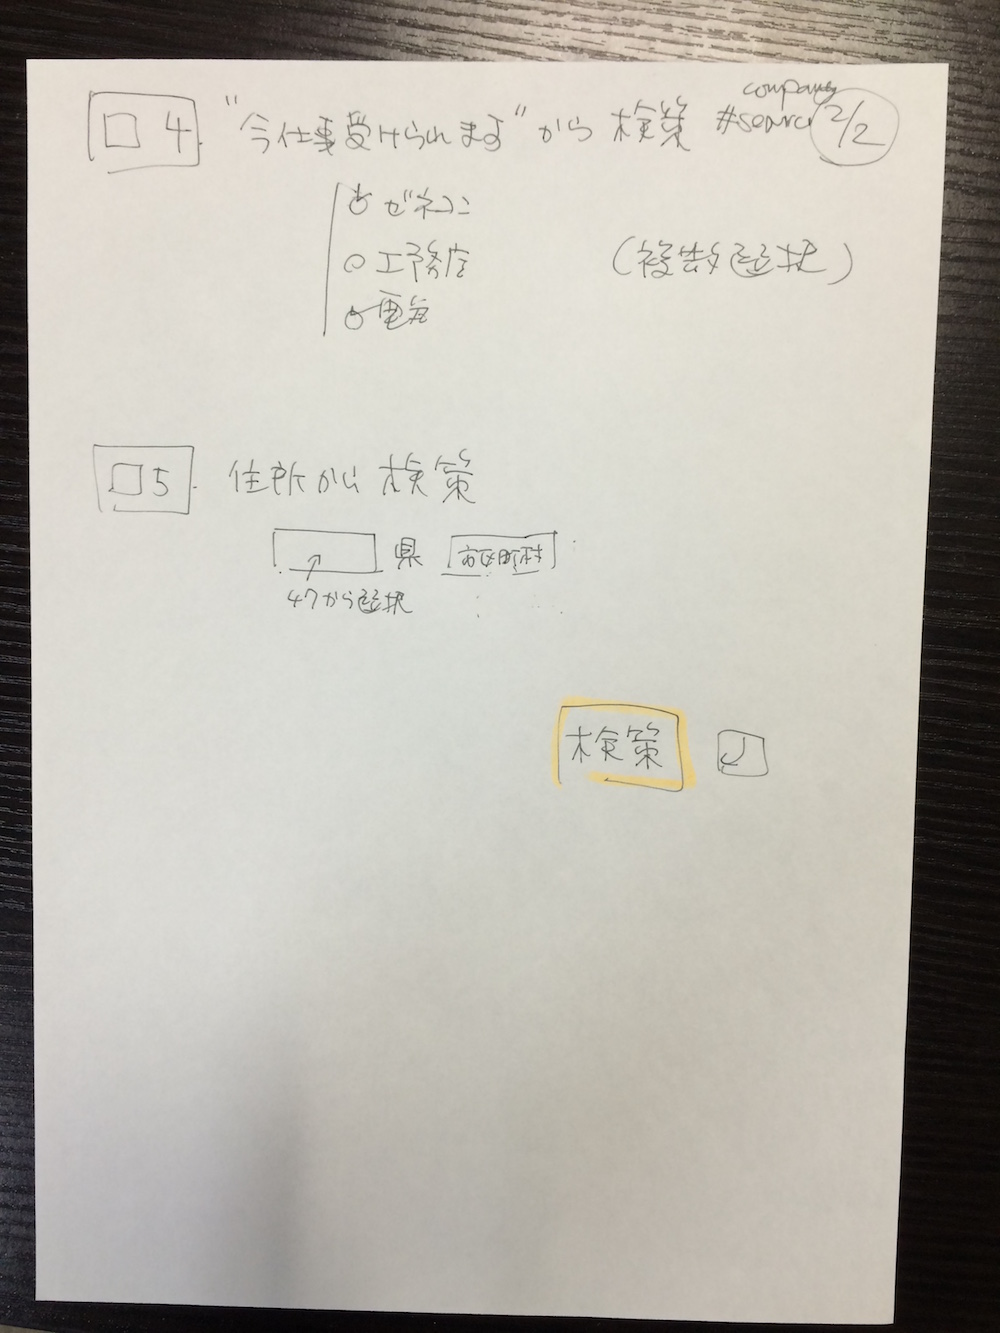 □ 4 "今仕事受けられます"から 検策 #search
company
2/2
ゼネコン
工務店 (複数選択)
電気
□ 5. 住所から 検策
県 市区町村
47から選択
検策